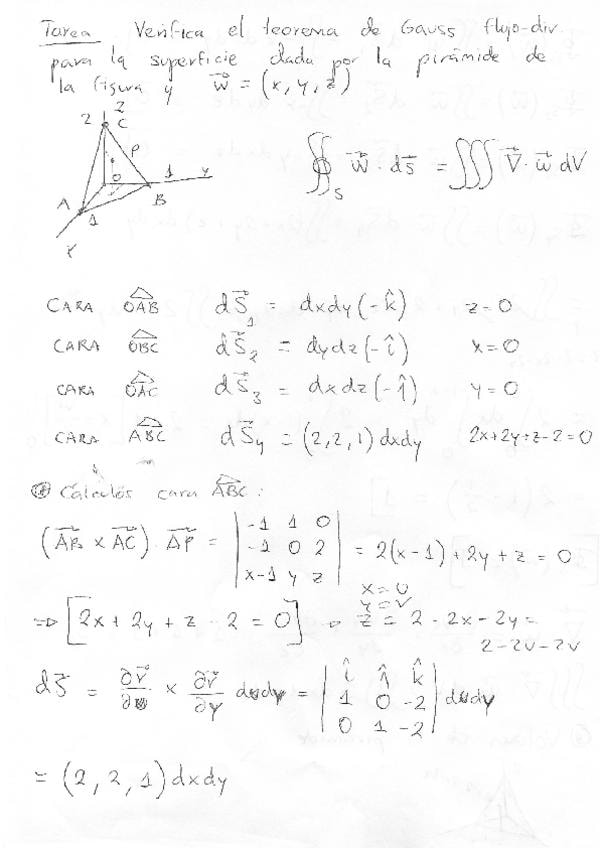 Tarea Verifica el teorema de Gauss flujo-div.
para la superficie dada por la pirámide de
la figura y w⃗ = (x, y, z)
z
2 C
P
O 1 y
A 1 B
x
∯_S w⃗ · ds⃗ = ∭ ∇⃗ · w⃗ dV
CARA OAB dS⃗₁ = dxdy(-k̂) z=0
CARA OBC dS⃗₂ = dydz(-î) x=0
CARA OAC dS⃗₃ = dxdz(-ĵ) y=0
CARA ABC dS⃗₄ = (2,2,1)dxdy 2x+2y+z-2=0
Cálculos cara ABC:
(AB⃗ × AC⃗) · AP⃗ = | -1 1 0 |
| -1 0 2 | = 2(x-1)+2y+z = 0
| x-1 y z |
x=u
y=v
⇒ [2x + 2y + z - 2 = 0] z = 2 - 2x - 2y =
2-2u-2v
dS⃗ = ∂r⃗/∂u × ∂r⃗/∂y dxdy = | î ĵ k̂ |
| 1 0 -2 | dxdy
| 0 1 -2 |
= (2, 2, 1) dxdy